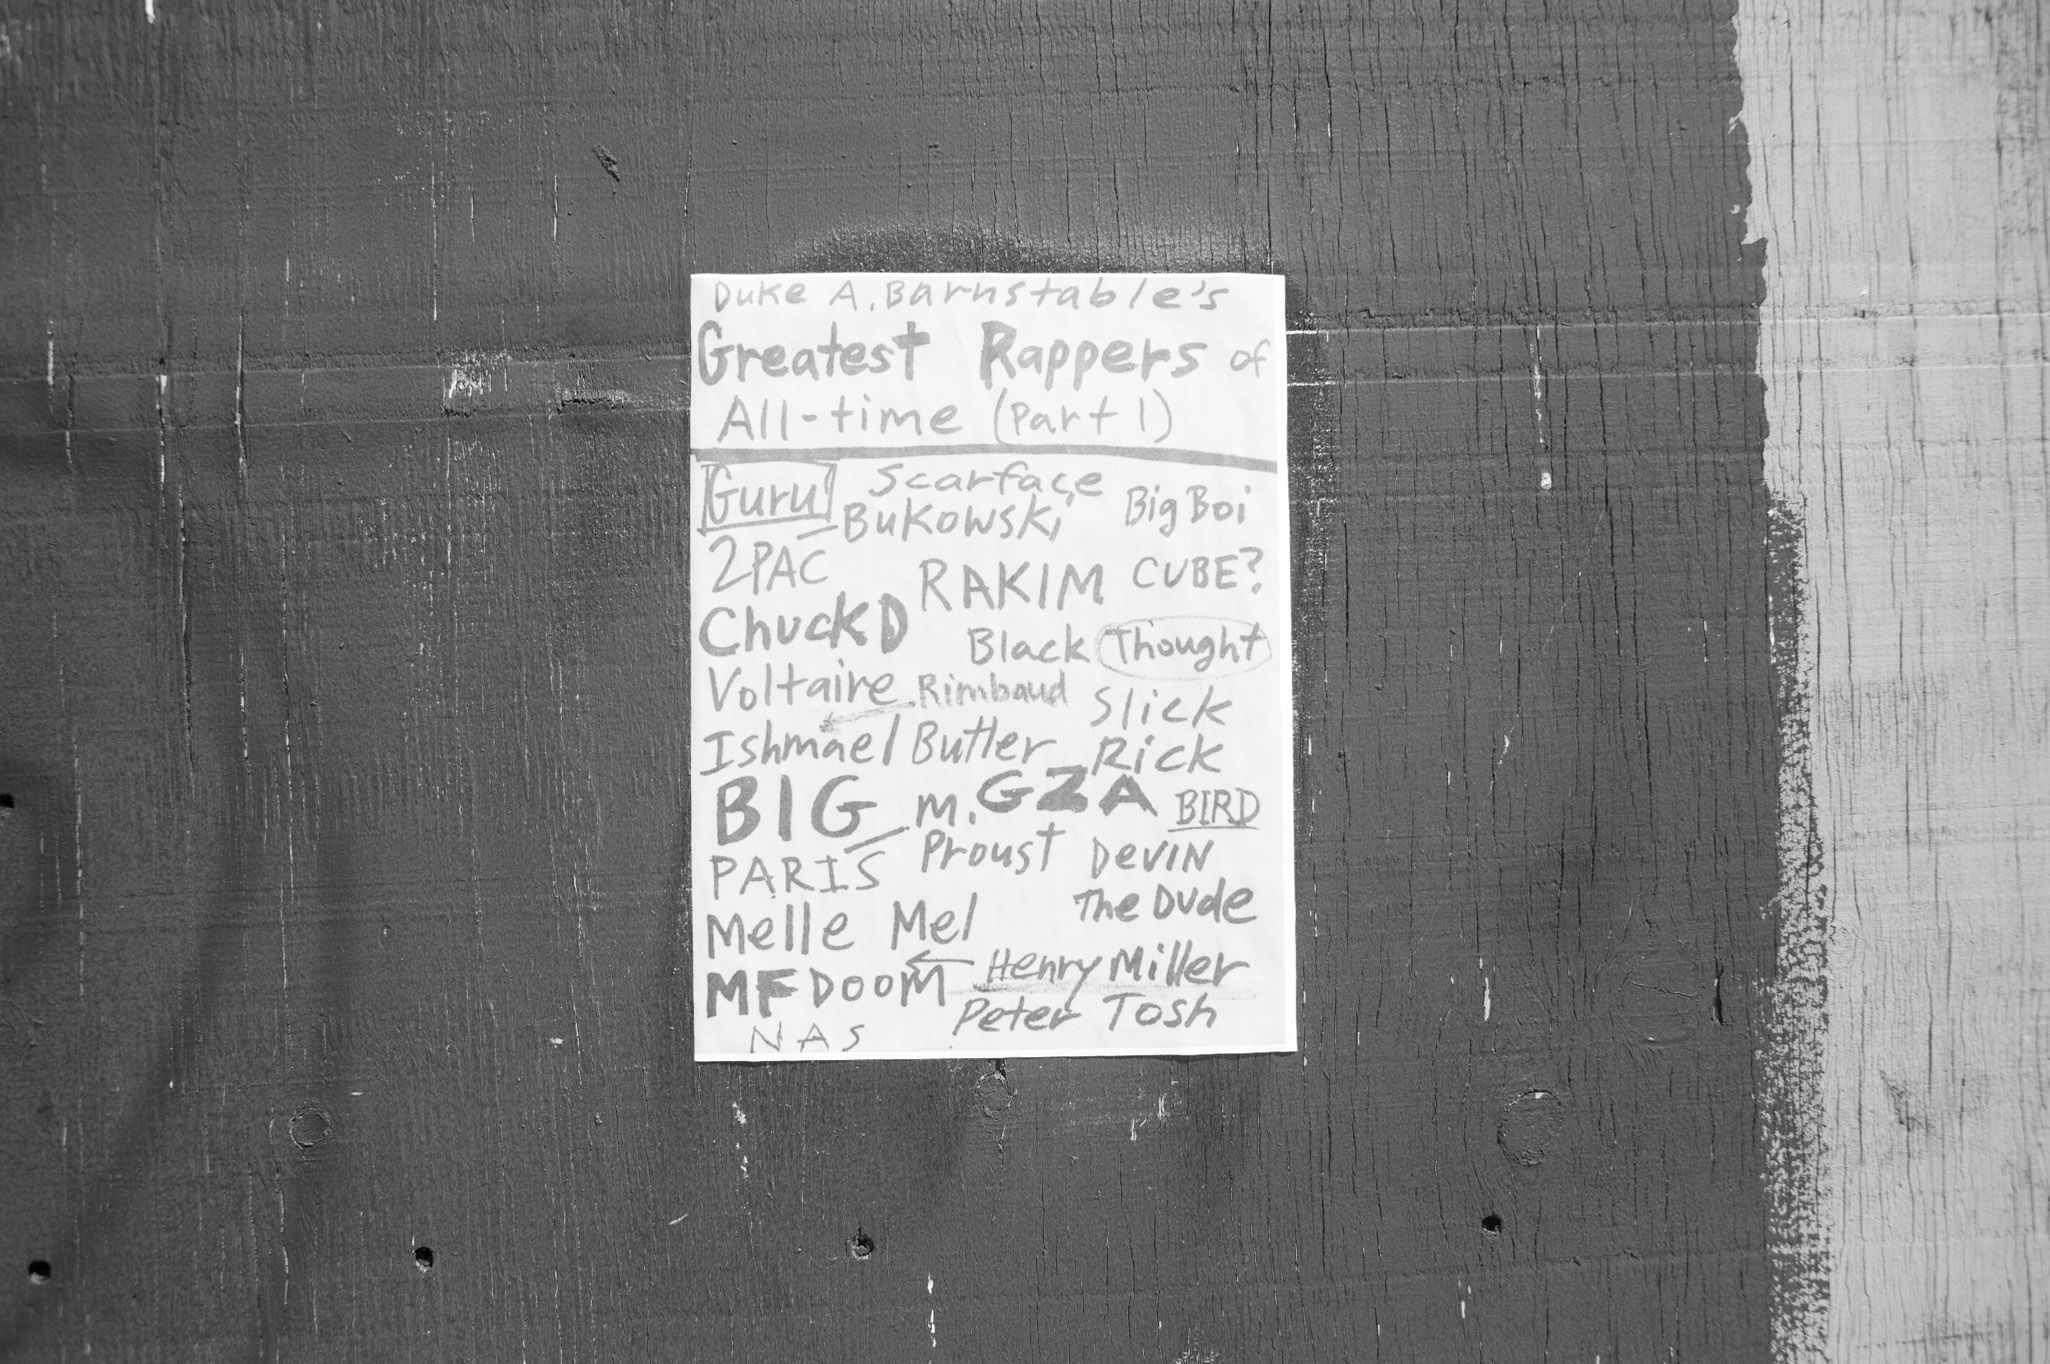 Duke A. Barnstable's
Greatest Rappers of
All-time (Part 1)
Guru Scarface
Bukowski Big Boi
2PAC RAKIM CUBE?
Chuck D Black Thought
Voltaire Rimbaud Slick
Ishmael Butler Rick
BIG M. GZA BIRD
PARIS Proust DeVIN
Melle Mel The Dude
MF DOOM Henry Miller
NAS Peter Tosh